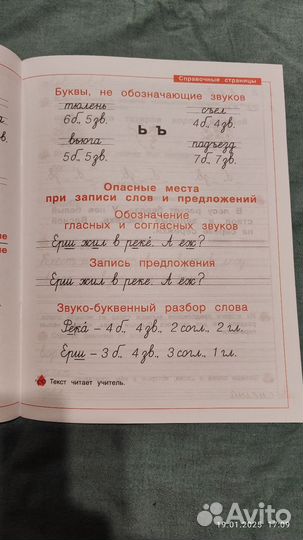 Справочные страницы
Буквы, не обозначающие звуков
тюлень
6б., 5зв.
съел
4б., 4зв.
ь ъ
вьюга
5б., 5зв.
подъезд
7б., 7зв.
Опасные места
при записи слов и предложений
Обозначение
гласных и согласных звуков
Ерш жил в реке. А еж?
Запись предложения
Ерш жил в реке. А еж?
Звуко-буквенный разбор слова
Река – 4 б., 4 зв., 2 согл., 2 гл.
Ерш – 3 б., 4 зв., 3 согл., 1 гл.
Текст читает учитель.
19.01.2025 17:09
Avito